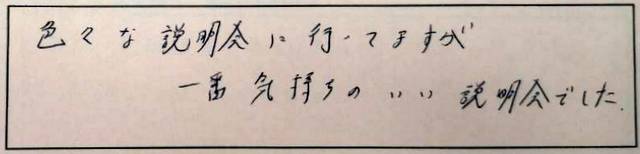 色々な説明会に行ってますが
一番気持ちのいい説明会でした.